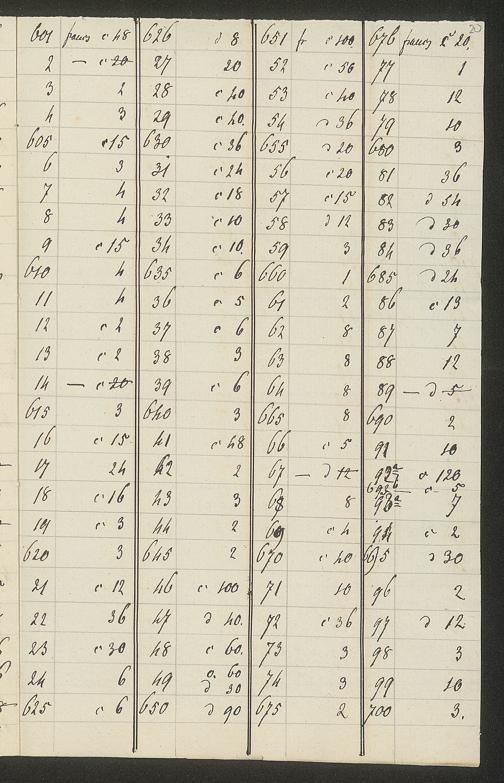 20
601 francs c 48 626 d 8 651 fr c 100 676 francs c 20.
2 — c 20 27 20 52 c 56 77 1
3 2 28 c 40 53 c 40 78 12
4 3 29 c 20. 54 d 36 79 10
605 c 15 630 c 36 655 d 20 680 3
6 3 31 c 24 56 c 20 81 36
7 4 32 c 18 57 c 15 82 d 54
8 4 33 c 10 58 d 12 83 d 30
9 c 15 34 c 10. 59 3 84 d 36
610 4 635 c 6 660 1 685 d 24
11 4 36 c 5 61 2 86 c 13
12 c 2 37 c 6 62 8 87 7
13 c 2 38 3 63 8 88 12
14 — c 20 39 c 6 64 8 89 — d 5
615 3 640 3 665 8 690 2
16 c 15 41 c 48 66 c 5 91 10
17 24 42 2 67 — d 12 92a c 120
692b — c 5
18 c 16 43 3 68 8 93a 7
19 c 3 44 2 69 c 4 94 c 2
620 3 645 2 670 c 40 695 d 30
21 c 12 46 c 100 71 10 96 2
22 36 47 d 40. 72 c 36 97 d 12
23 c 30 48 c 60. 73 3 98 3
24 6 49 o. 60 d 30 74 3 99 10
625 c 6 650 d 90 675 2 700 3.